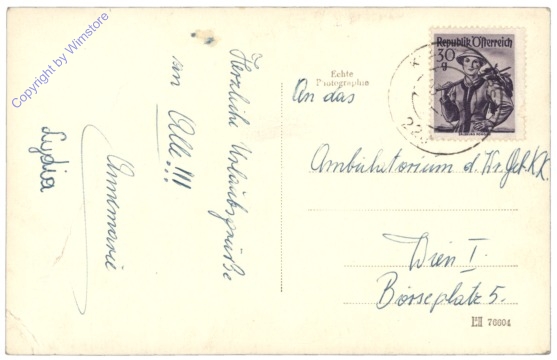 Copyright by Wimstore
Herzliche Urlaubsgrüße
an Alle!!!
Annemarie
Lydia
Echte
Photographie
Republik Österreich
30
g
22
An das
Ambulatorium d. Kr. Geb. KK.
Wien I.
Börseplatz 5.
76604